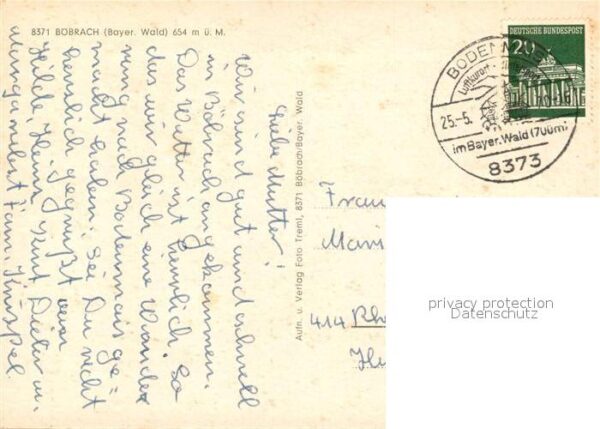 8371 BÖBRACH (Bayer. Wald) 654 m ü. M.
Liebe Mutter!
Wir sind gut und schnell
in Böbrach angekommen.
Das Wetter ist ziemlich. So
das wir gleich eine Wander
rung nach Bodenmais ge=
macht haben. Sei Du recht
herzlich gegrüßt von
Hilde, Heinz, Kurt Dieter u.
nebst Fam.
Aufn. u. Verlag Foto Treml, 8371 Böbrach/Bayer. Wald
DEUTSCHE BUNDESPOST
20
BODENMAIS
Luftkurort
25.-5.
im Bayer. Wald (700m)
8373
Frau
414 Rhe
privacy protection
Datenschutz